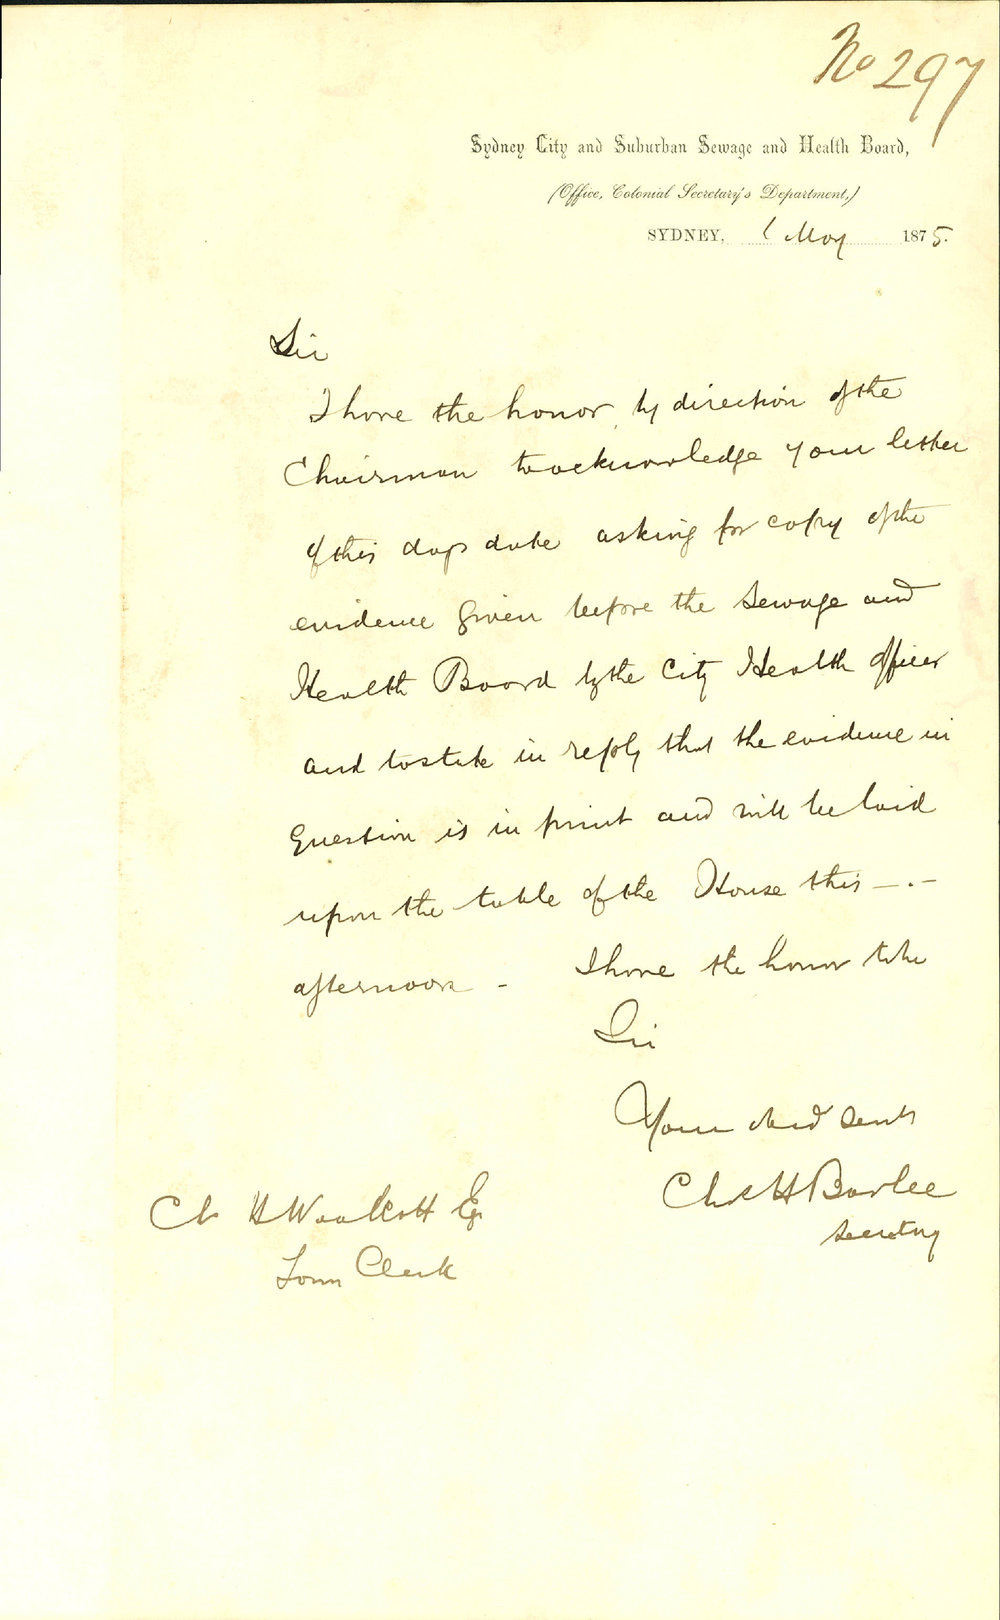 No 297
Sydney City and Suburban Sewage and Health Board,
(Office, Colonial Secretary's Department,)
SYDNEY, 6 May 1875.
Sir
I have the honor by direction of the
Chairman to acknowledge your letter
of this days date asking for copy of the
evidence given before the Sewage and
Health Board by the City Health officer
and to state in reply that the evidence in
question is in print and will be laid
upon the table of the House this —.—
afternoon - I have the honor to be
Sir
Your obed servt
Chas H Barlee
Secretary
Ch H Woolcott Eq
Town Clerk